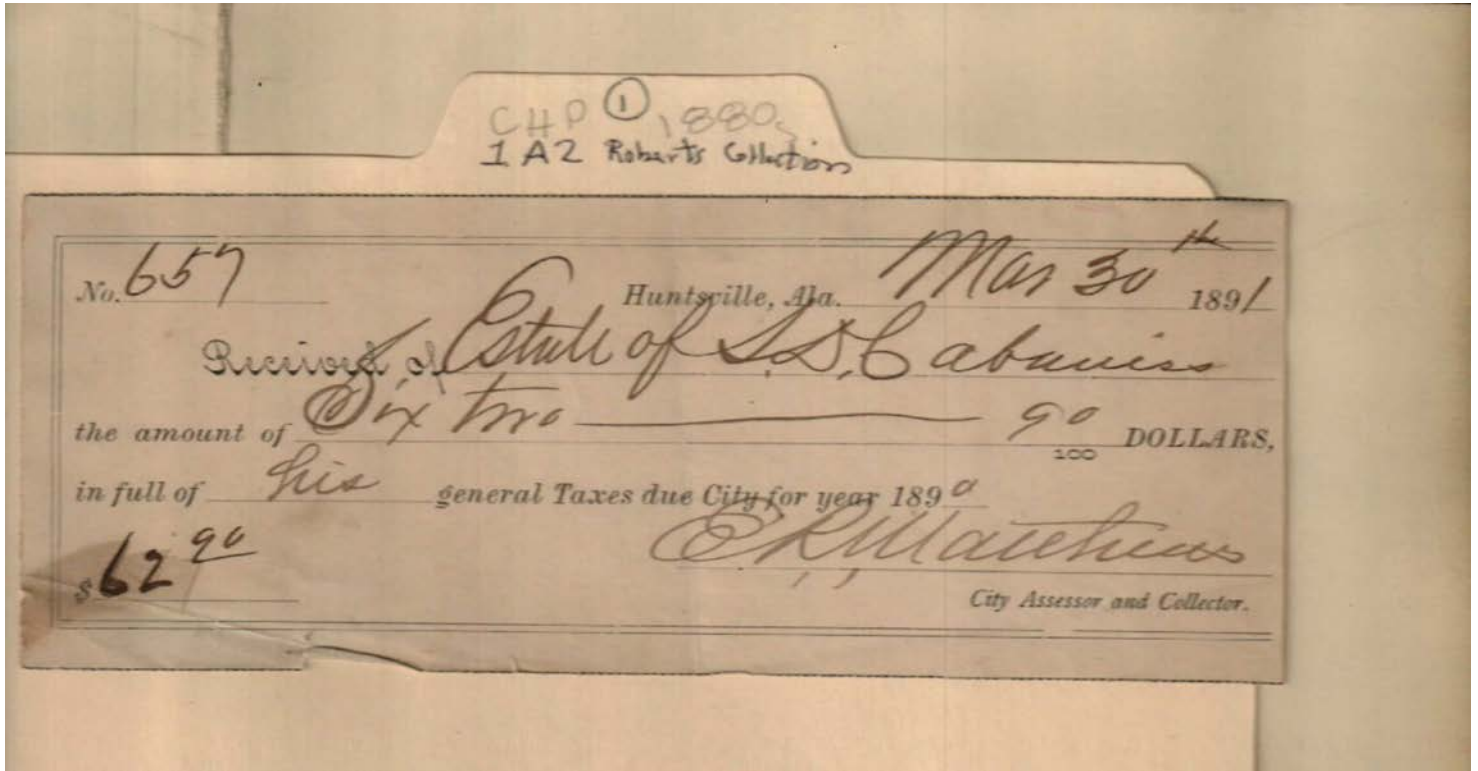 CHP ① 1880s
1A2 Roberts Collection
No. 657 Huntsville, Ala. Mar 30th 1891
Received of Estate of S.D. Cabaniss
the amount of Six two 90/100 DOLLARS,
in full of his general Taxes due City for year 1890
$62 90 E.R. Matthews
City Assessor and Collector.